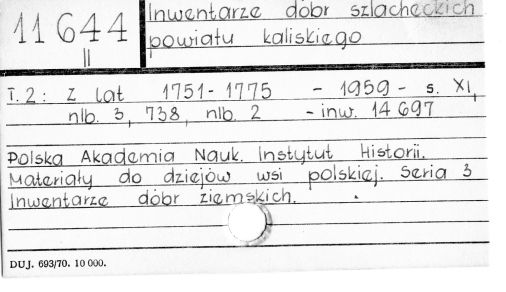 11 644
II
Inwentarze dóbr szlacheckich
powiatu kaliskiego
T. 2: z lat 1751-1775 - 1959 - s. XI,
nlb. 3, 738, nlb. 2 - inw. 14 697
Polska Akademia Nauk. Instytut Historii.
Materiały do dziejów wsi polskiej. Seria 3
Inwentarze dóbr ziemskich.
DUJ. 693/70. 10 000.